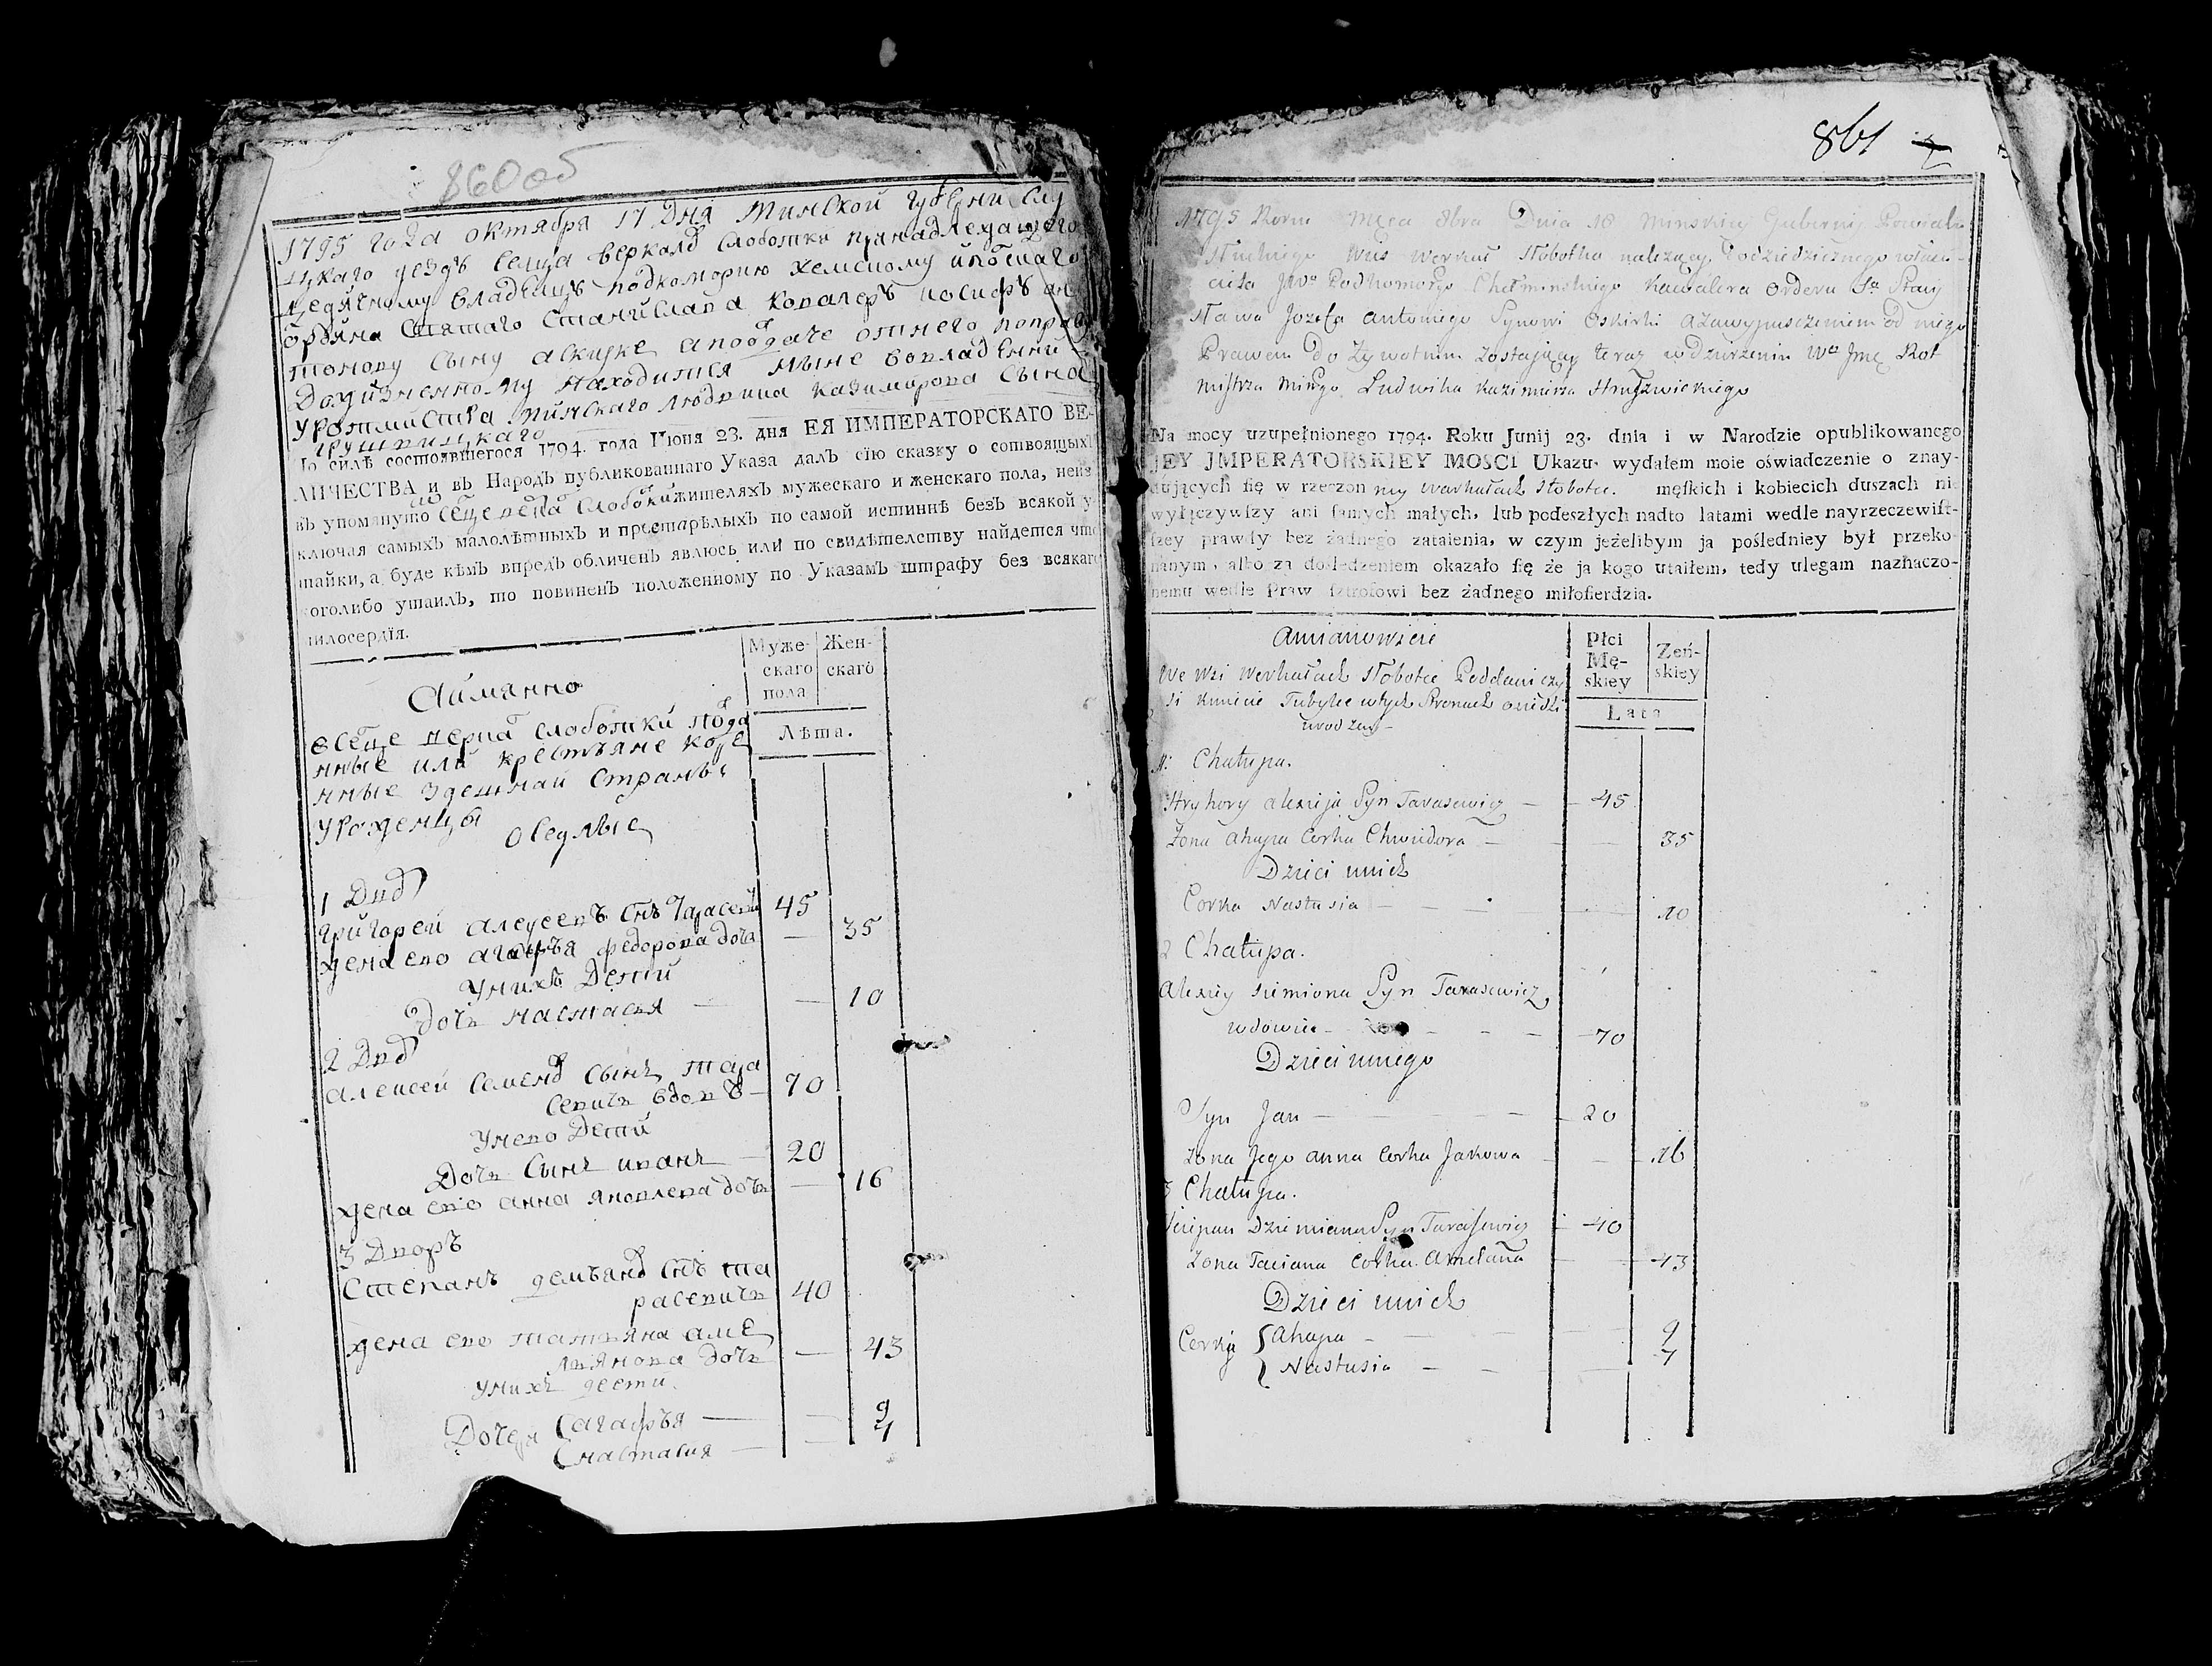 860 об
1795 года октября 17 дня Минской губерни Слу
цкаго уезда селца веркалъ слоботки принадлежащего
владелцу подкоморию хелмскому
ордина святаго Станислава ковалеръ иосифъ ан
тонову сыну аскирке
нынe
Казимирова сына
По силѣ состоявшегося 1794. года Іюня 23. дня ЕЯ ИМПЕРАТОРСКАГО ВЕ-
ЛИЧЕСТВА и въ Народъ публикованнаго Указа далъ сію сказку о состоящихъ
въ упомянуто жителяхъ мужескаго и женскаго пола, неиз
ключая самыхъ малолѣтныхъ и престарѣлыхъ по самой истиннѣ безъ всякой у
тайки, а буде кѣмъ впредь обличенъ явлюсь или по свидѣтелству найдется что
оголибо утаилъ, то повиненъ положенному по Указамъ штрафу без всякаго
милосердїя.
Муже-
скаго
пола
Жен-
скаго
Лѣта.
Аимянно
слоботки пода
нные или крестьяне коре
нные здешнай страны
уроженцы
оседлые
1 Двор
григорей алексеевъ снъ Тарасевич 45
жена ево агафья федорова дочь — 35
У них детей
дочь настасья — — 10
2 Двор
алексей семенов сынъ тара
севичь вдовъ — 70
У него детей
Дочь сынъ иванъ — 20
жена ево анна яковлева дочь — 16
3 Дворъ
Степанъ демьянов снъ та
расевичь 40
жена ево татьяна аме
льянова дочь — 43
У нихъ дети
Дочери агафья — — 9
настасия — — 7
861
1795 Roku Mca 8bra Dnia 18 Minskiey Gubernij Powiatu
Słuckiego Wsi Werkał Słobotka należący Podziedzicznego właści-
ciela Jwo Podkomorgo Chełminskiego Kawalera Orderu So Stani
sława Jozefa Antoniego Synowi Oskirki a zawypuszczeniem od niego
Prawem Do Żywotnim zostający teraz w dzierżeniu Wo Jmc Rot
mistrza Mińgo Ludwika Kazimierza
Na mocy uzupełnionego 1794. Roku Junij 23. dnia i w Narodzie opublikowanego
JEY JMPERATORSKIEY MOSCI Ukazu, wydałem moie oświadczenie o znay-
dujących się w rzeczon ey Warkałach Słobotce. męskich i kobiecich duszach nie
wyłączywszy ani samych małych, lub podeszłych nadto latami wedle nayrzeczewist-
szey prawdy bez żadnego zataienia, w czym jeżelibym ja posledniey był przeko-
nanym, albo za dosledzeniem okazało się że ja kogo utaiłem, tedy ulegam naznaczo-
nemu wedle Praw sztrofowi bez żadnego miłosierdzia.
Amianowicie
Płci
Mę-
skiey
Żeń-
skiey
Lata
We Wsi Werkałach Słobotce Poddani czy
li Kmiecie Tubylce wtych Stronach osiedli
urodzeny
1: Chałupa.
Hryhory Alexieja Syn Tarasewicz — 45
Żona Ahapa Corka Chwiedora — — 35
Dzieci unich
Corka Nastasia — — 10
2 Chałupa.
Alexiey Siemiona Syn Tarasewicz
wdowiec — — 70
Dzieci uniego
Syn Jan — — 20
Żona Jego Anna Corka Jakowa — 16
3 Chałupa.
Sciepan Dziemiana Syn Tarasewicz — 40
Żona Taciana Corka Amelana — 43
Dzieci unich
Corki { Ahapa — — 9
Nastusia — — 7